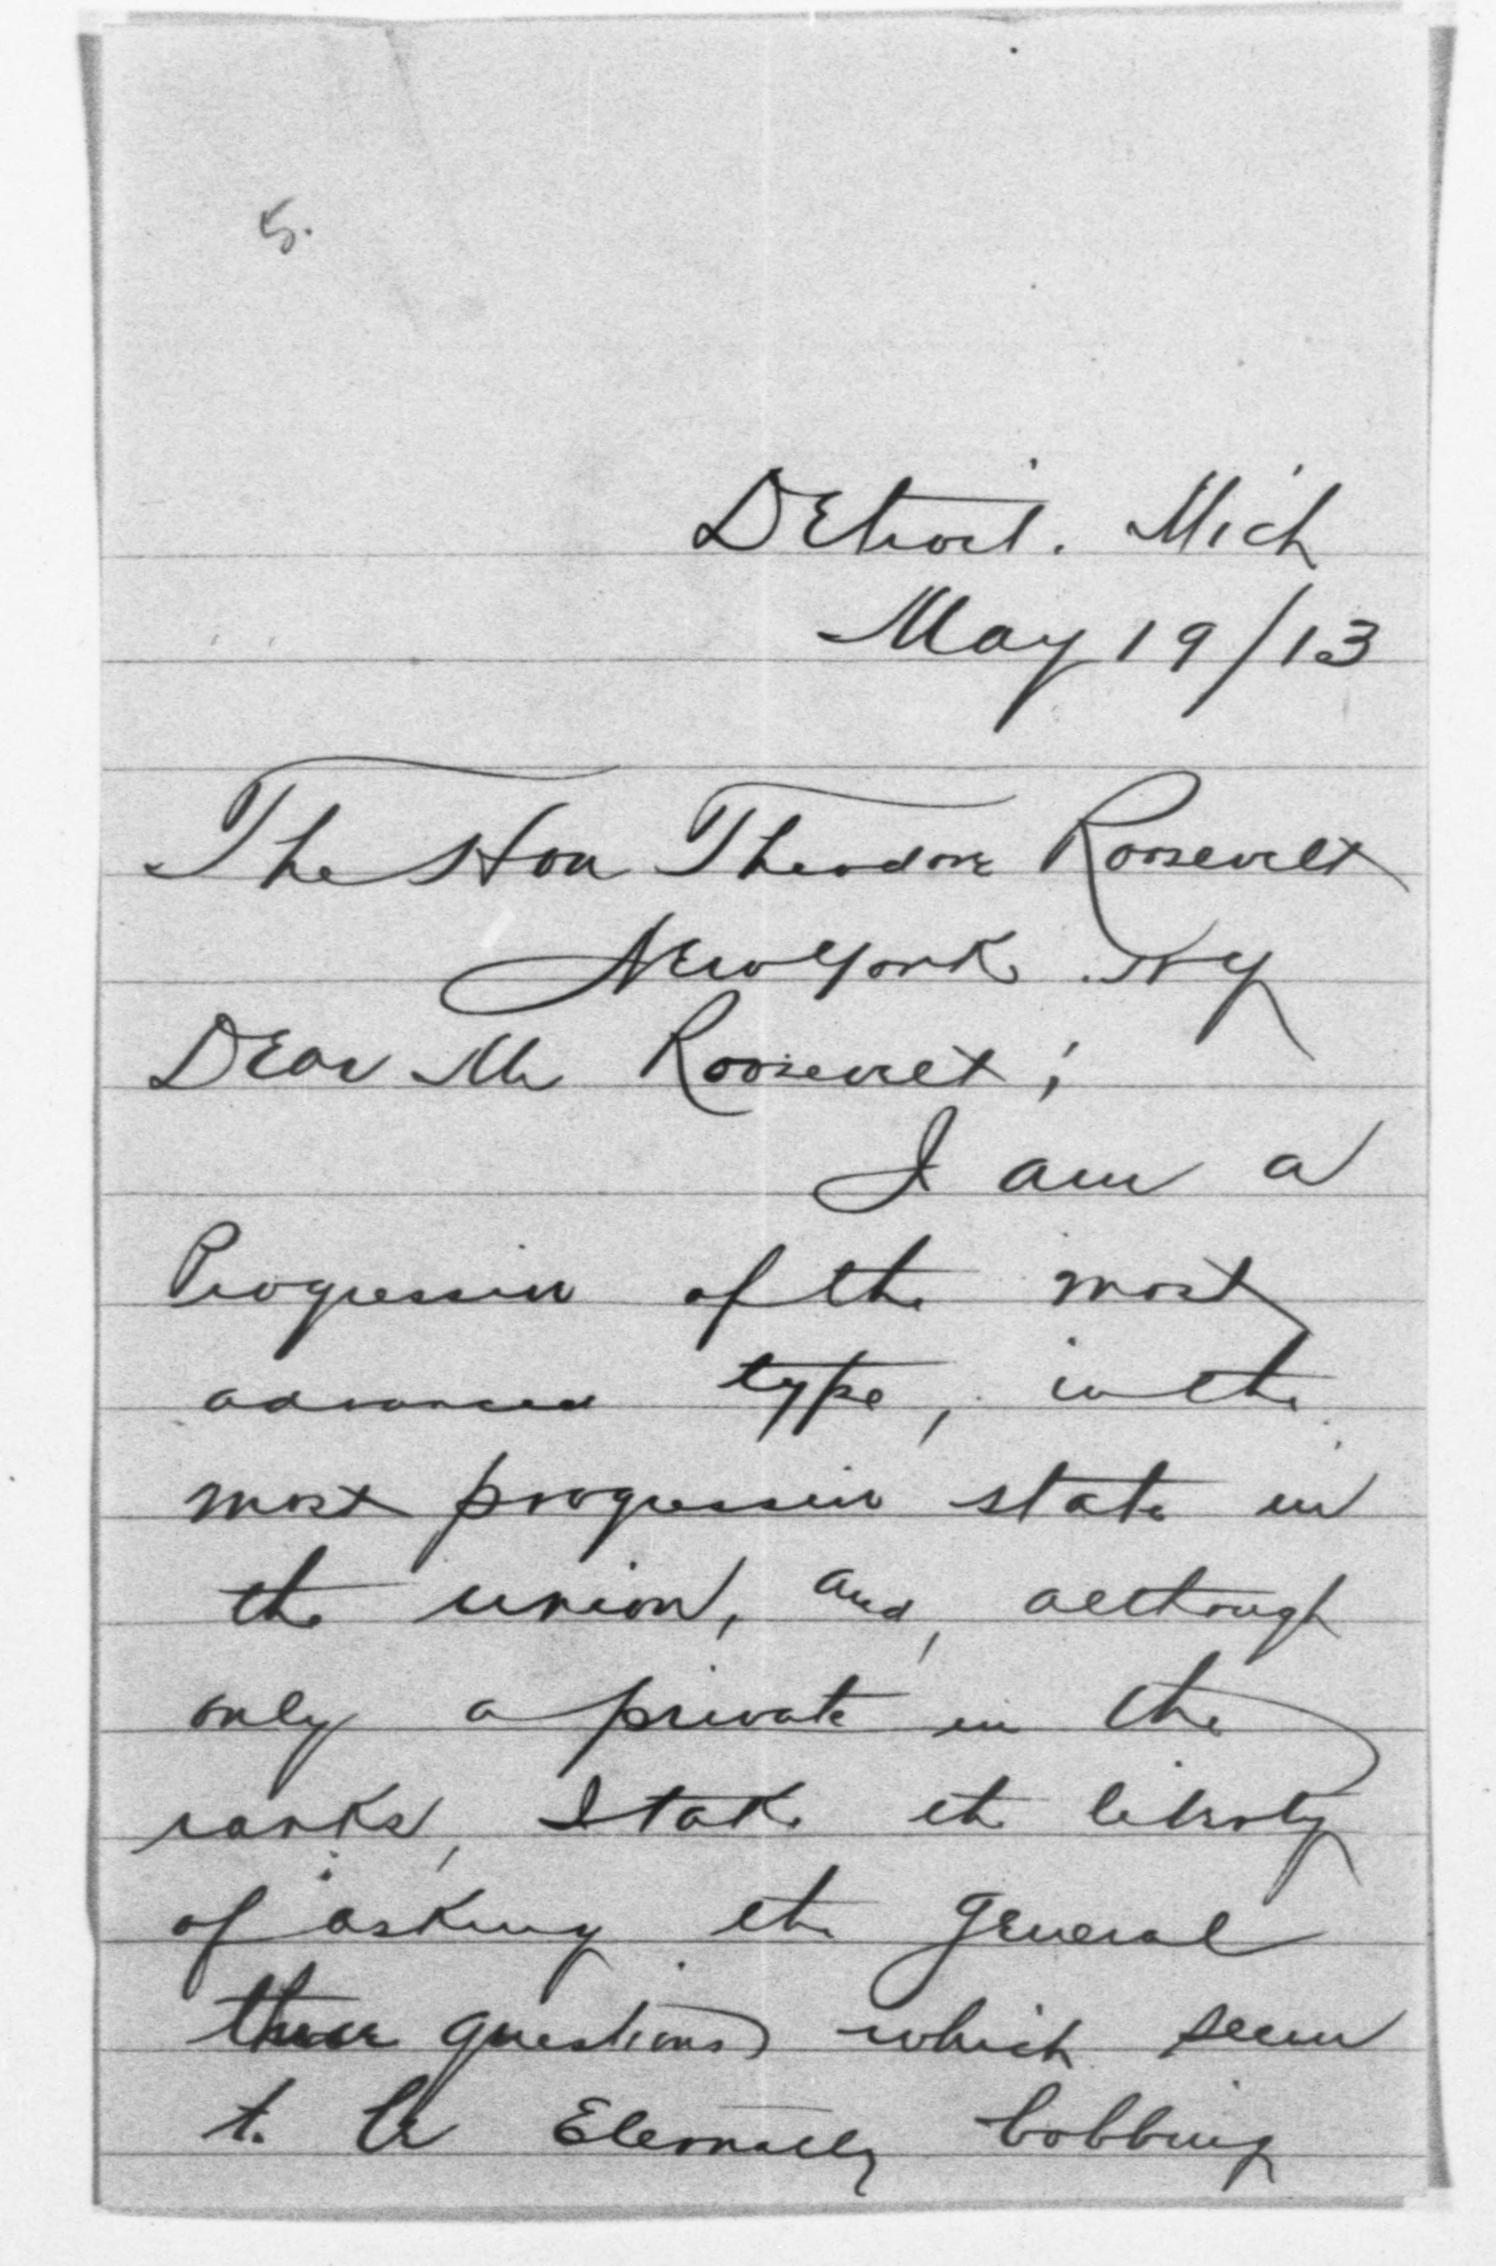 5.
Detroit. Mich
May 19/13
The Hon Theodore Roosevelt
New York. NY
Dear Mr Roosevelt;
I am a
Progressive of the most
advanced type, in the
most progressive state in
the union, and, although
only a private in the
ranks, I take the liberty
of asking the General
three questions which seem
to be Eternally bobbing